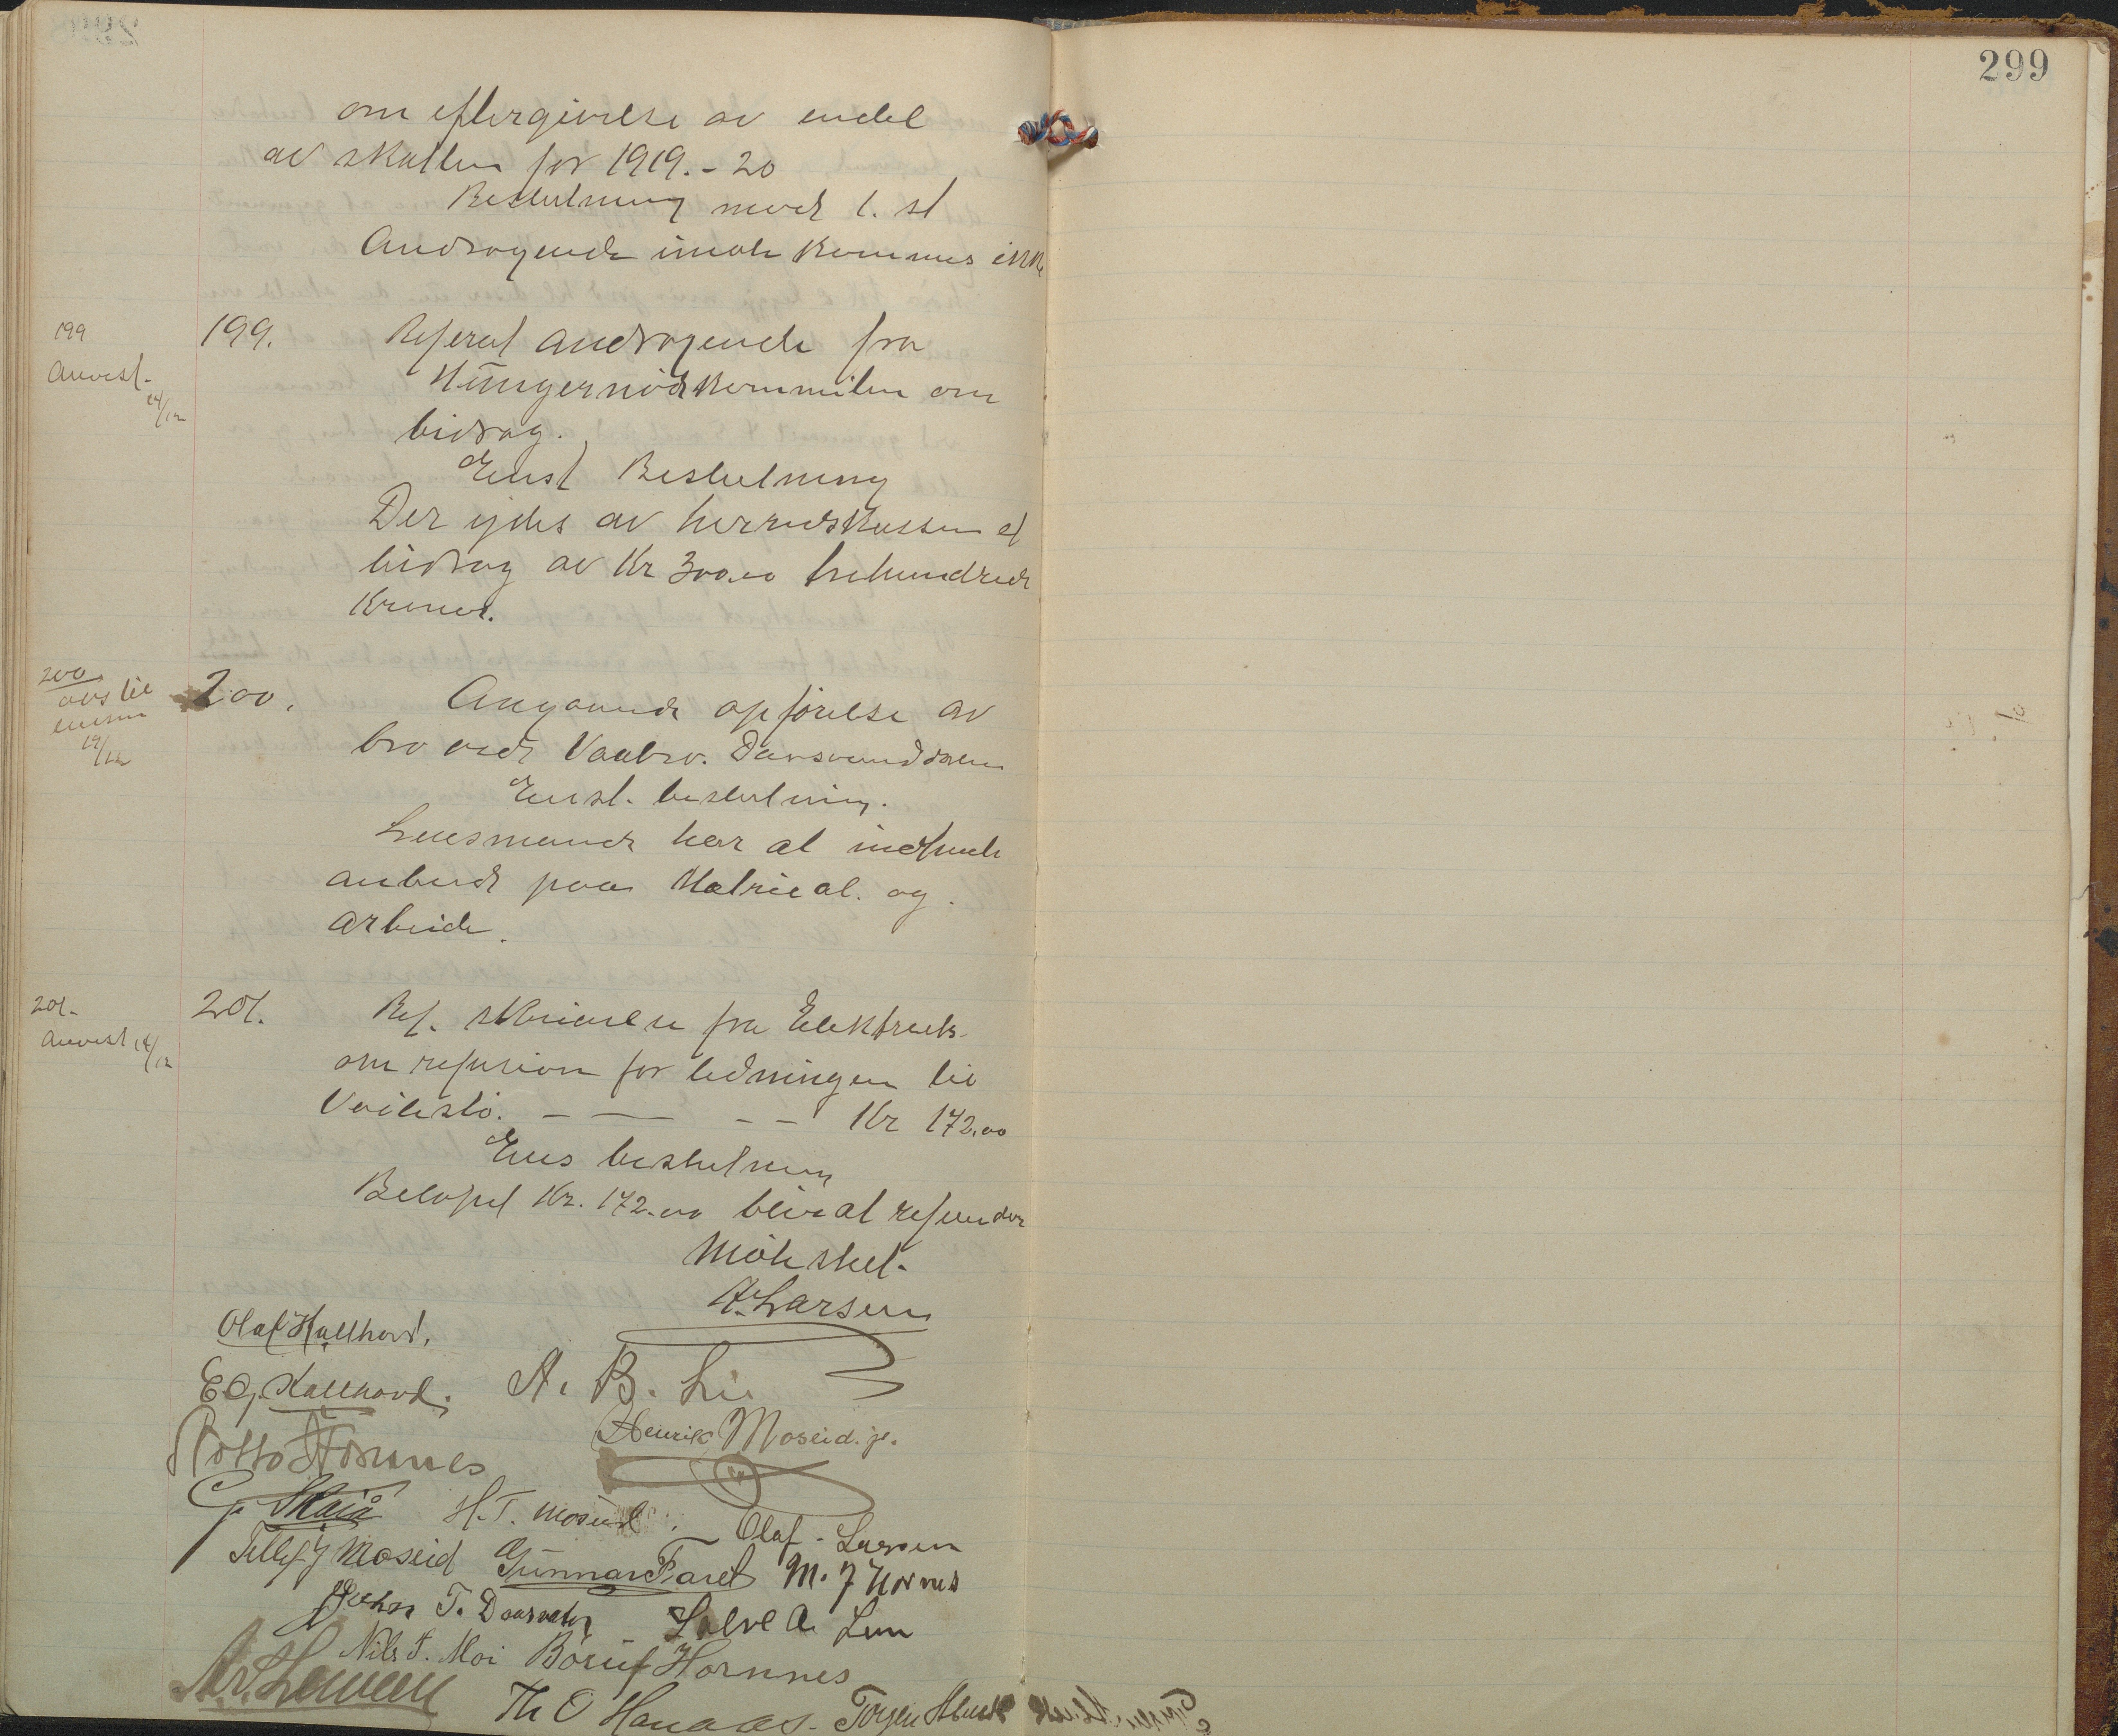 299
om eftergivelse av endel
av skatten for 1919.-20
Beslutning mod 1. st
Andragende imøtekommes ikke
199
Anvist
14/12
199. Referert andragende fra
Hungernødkommiteen om
bidrag.
Enst Beslutning
Der ydes av herredskassen et
bidrag av Kr 300.00 trehundrede
Kroner.
200
avs til
19/12
200. Angaaende opførelse av
bro ved Vaabro.
Enst. beslutning.
Lensmand har at indhente
anbud paa Matrieal. og
arbeide.
201.
Anvist 14/12
201. Ref. skrivelse fra Elektricits
om refusion for ledningen til
Veilesló. - — - - Kr 172.00
Ens beslutning
Beløpet Kr. 172.00 blir at refunder
Møte slut.
A. Larsen
Olaf Kallhovd.
E G. Kallhovd. A. B. Lie
Hornnes Henrik Moseid. jr.
H. T. Moseid. Olaf - Larsen
Tellef J Moseid Gunnar Faret M. J Hornes
John T. Daasvatn Salve A.
Nils T. Moi Børuf Hornnes
Th O